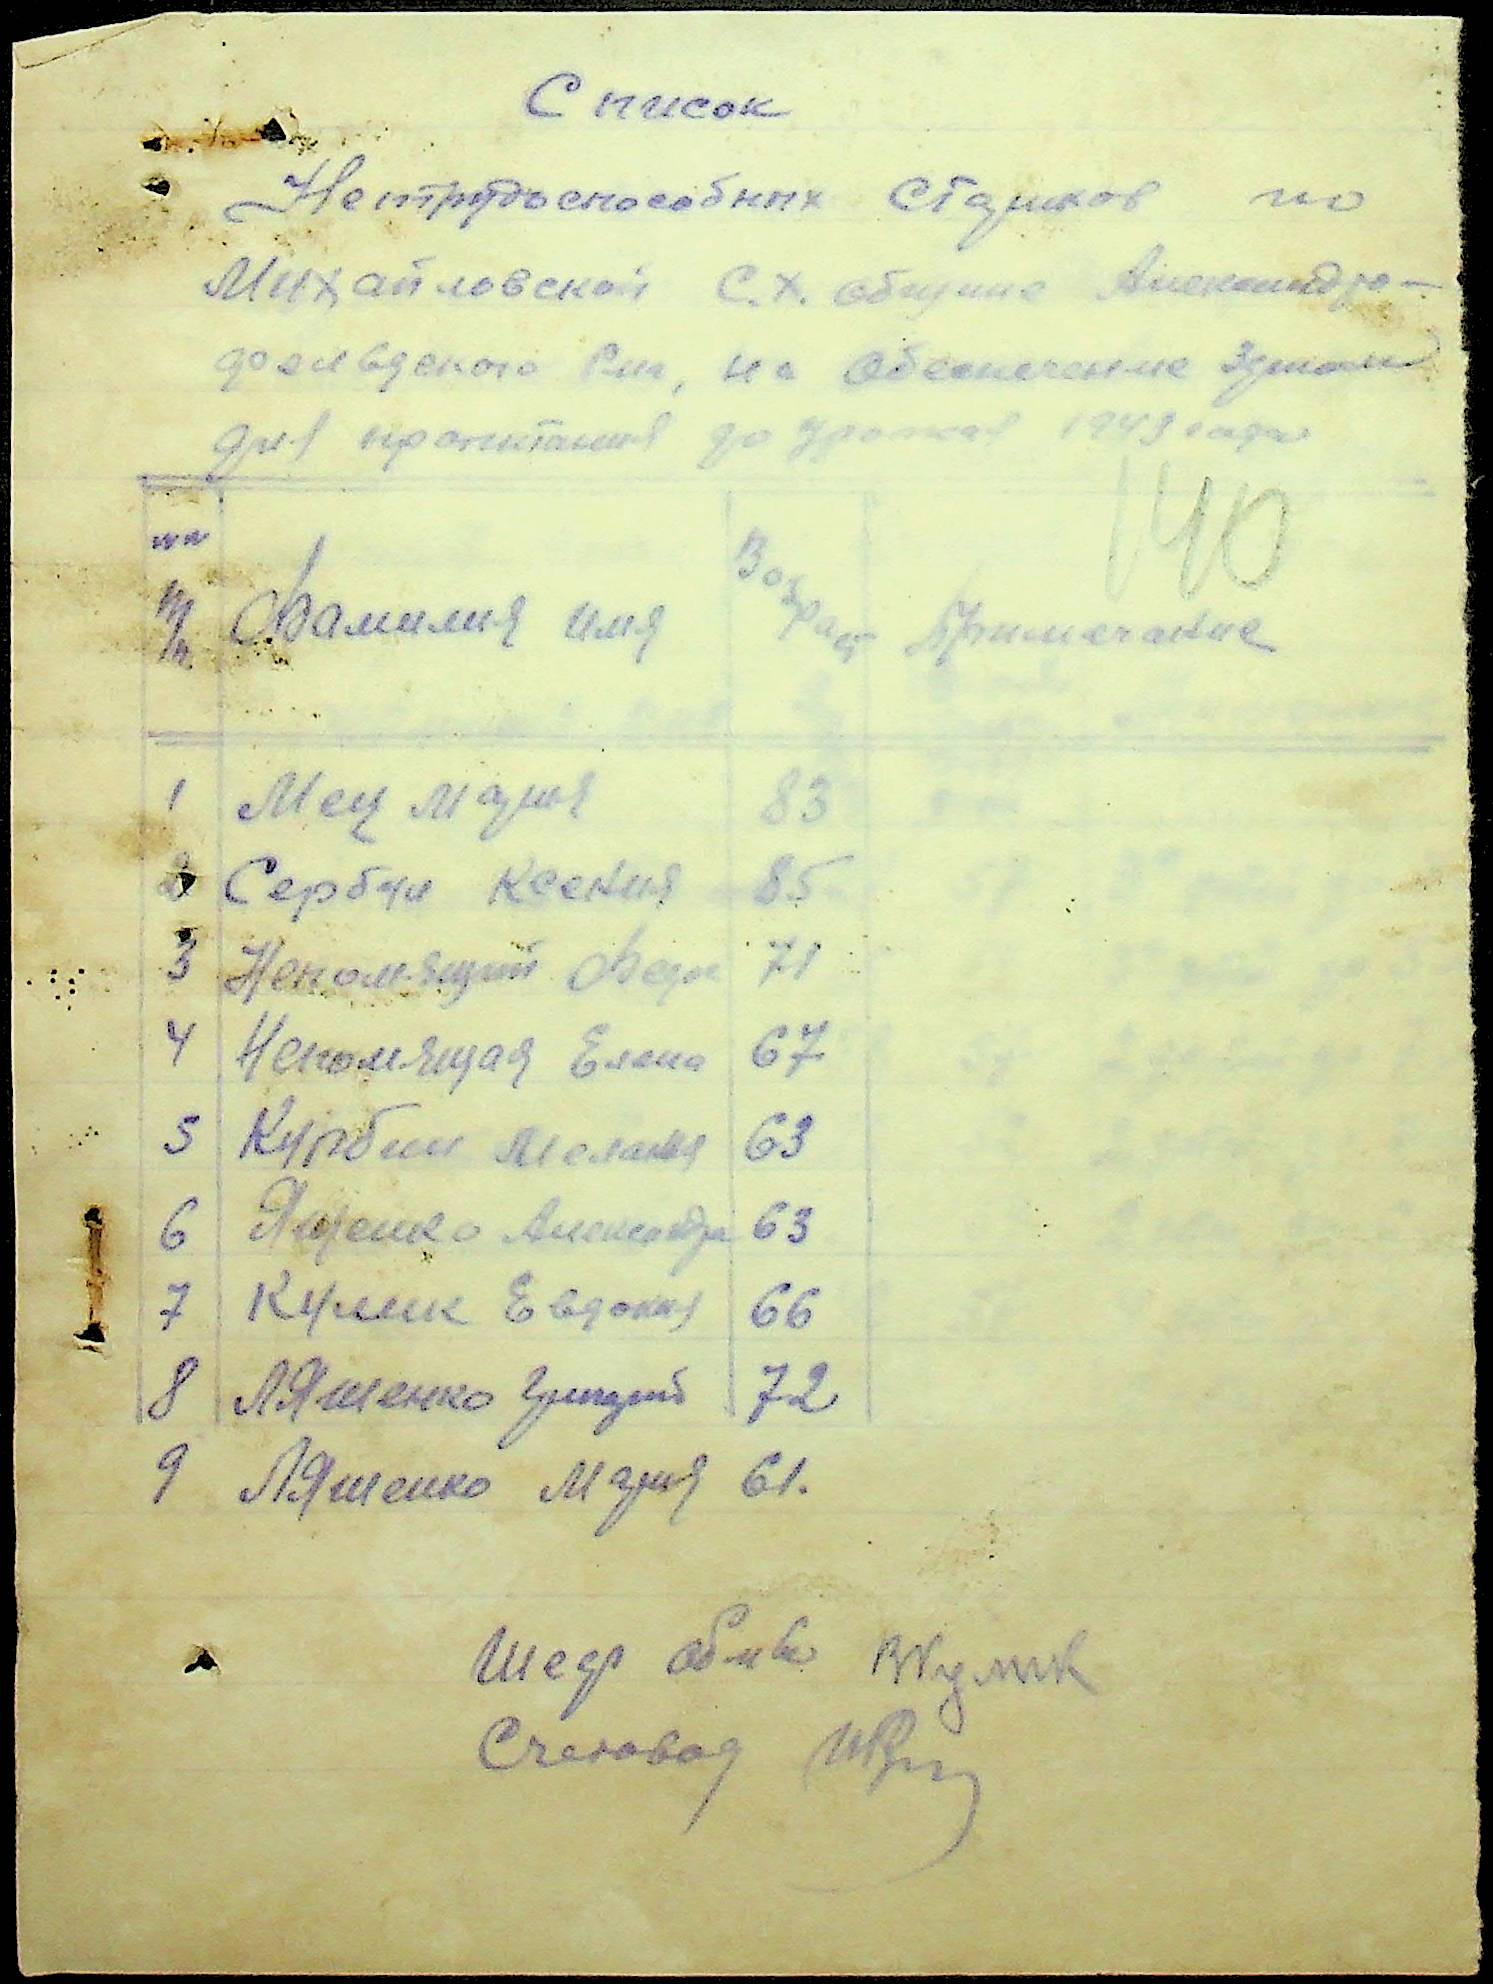 Список
Нетрудоспособных Стариков по
Михайловской С.Х. общине Александро-
фельдского Р-на, на обеспечение зерном
для пропитания до урожая 1943 года
140
п/п Фамилия имя Возраст Примечание
1 Мец Мария 83
2 Сербул Ксения 85
3 Непомящий Федор 71
4 Непомящая Елена 67
5 Курбин Мелания 63
6 Ященко Александра 63
7 Кулик Евдокия 66
8 Ляшенко Григорий 72
9 Ляшенко Мария 61.
Кулик
Счетовод